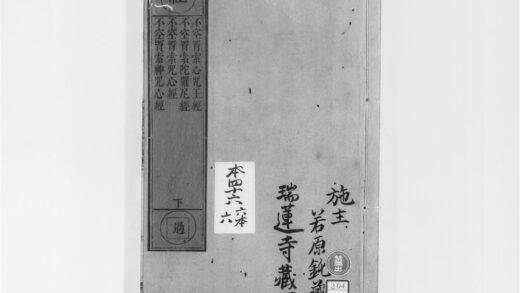 施主
若原
瑞蓮寺藏
不空罥索心咒王經
不空罥索陀羅尼經
不空罥索咒心經
不空罥索神咒心經
下
過
本四十六
六本
六
204